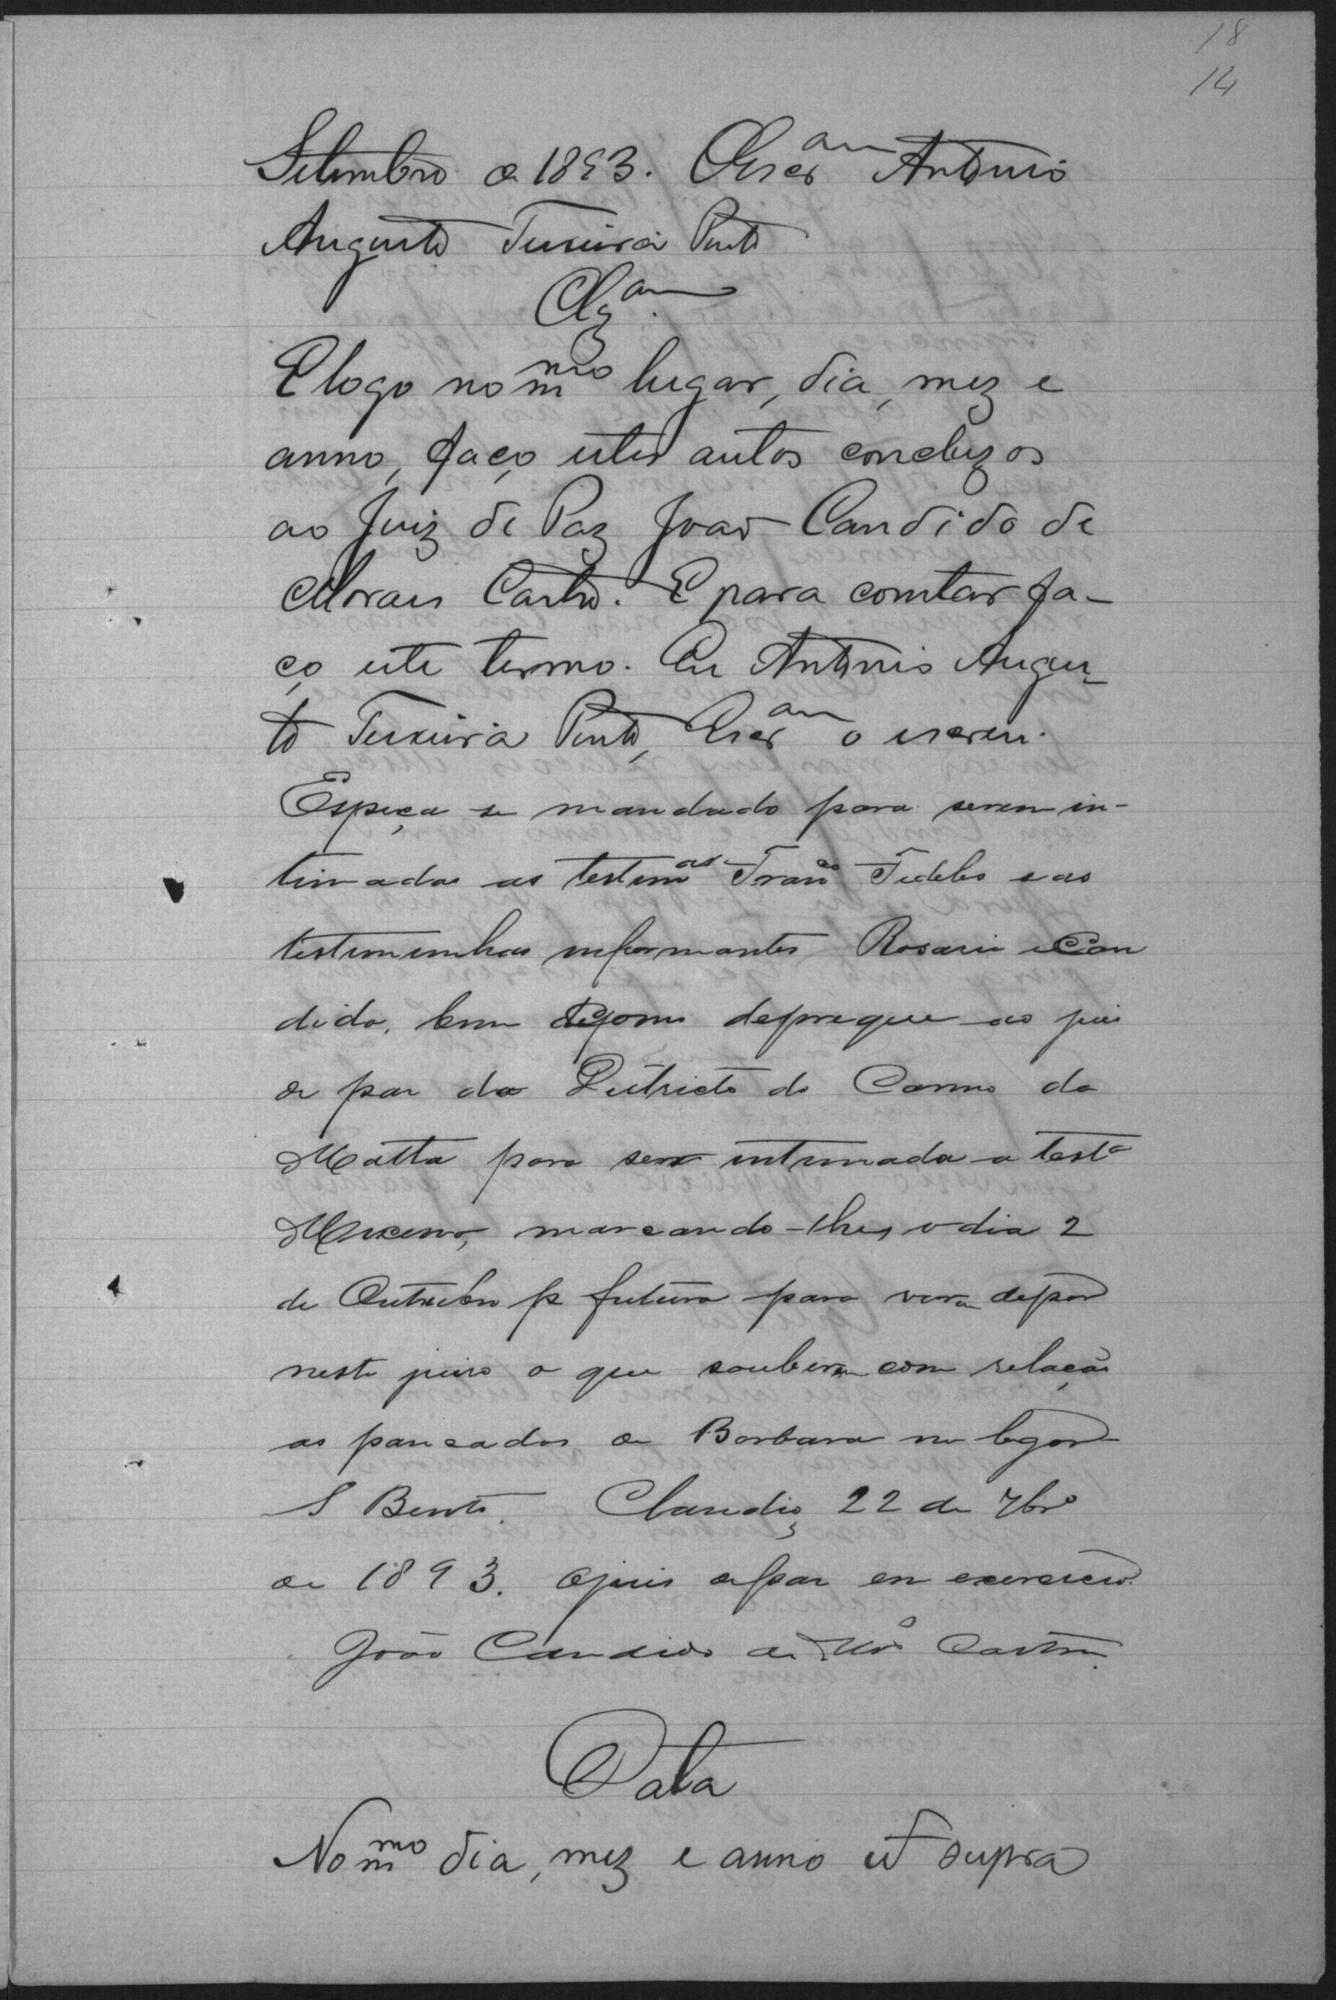 18
14
Setembro de 1893. O Escram Antonio
Augusto Teixeira Pinto
Clzam
E logo no mmo lugar, dia, mez e
anno, faço estes autos concluzos
ao Juiz de Paz João Candido de
Morais Castro. E para constar fa-
ço este termo. Eu Antonio Augus-
to Teixeira Pinto, Escram o escrevi.
Espeça se mandado para serem in-
timadas as testemas Franco Fidelis e as
testiminhas informantes Rosario e Can
dido, bem como depreque ao juis
de pas do Districto do Carmo da
Matta para ser intimada a testa
marcando-lhes o dia 2
de Outubro p futuro para virem depor
neste juiso o que souberem com relação
as pancadas de Barbara no logar
S Bento. Claudio, 22 de 7bro
de 1893. O juis de pas em exercicio.
João Candido de Mos Castro.
Data
No mmo dia, mez e anno ut supra